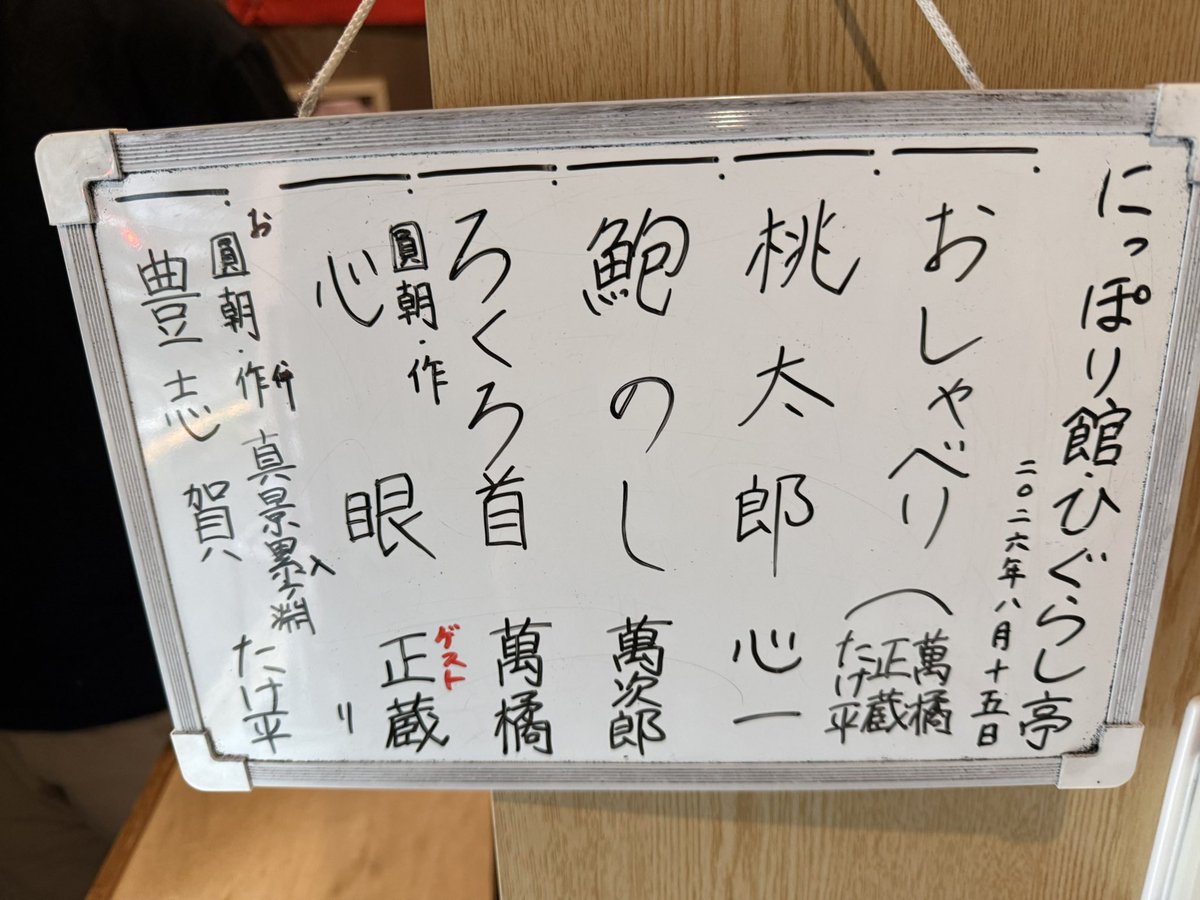 にっぽり館・ひぐらし亭
二〇二六年八月十五日
おしゃべり
萬橘
正蔵
たけ平
桃太郎 心一
鮑のし 萬次郎
ろくろ首 萬橘
圓朝・作
心眼
ゲスト
正蔵
圓朝・作 真景累ヶ淵
豊志賀 たけ平
お
仲
入
り